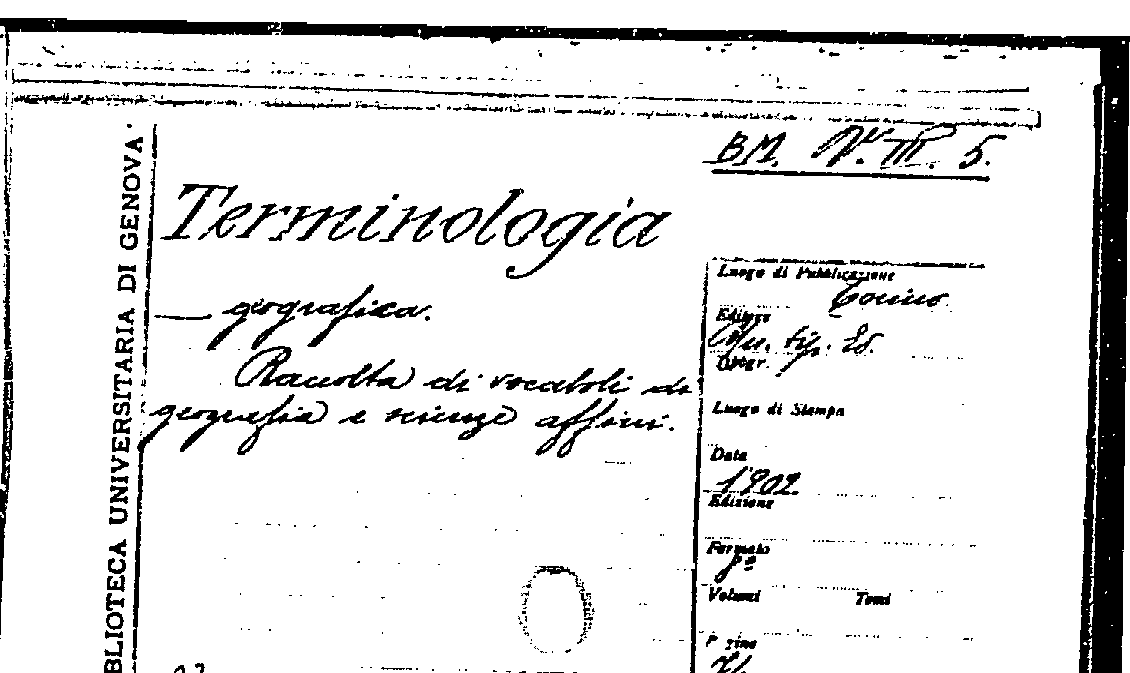 BM. V. III. 5.
BLIOTECA UNIVERSITARIA DI GENOVA
Terminologia
— geografica.
Raccolta di vocaboli di
geografia e scienze affini.
Luogo di Pubblicazione
Torino
Editore
tip. Ed.
Luogo di Stampa
Data
1902
Edizione
Formato
8º
Volumi Tomi